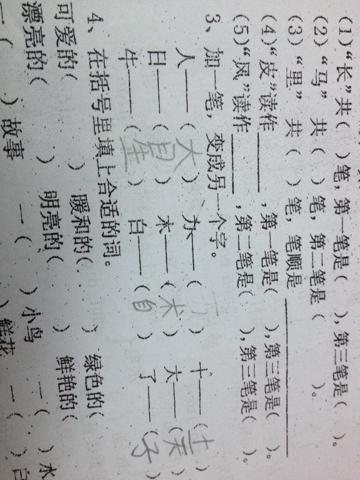 (1)“长”共( )笔,第一笔是( ),第三笔是( )。
(2)“马” 共( )笔,第二笔是( )。
(3)“里” 共( )笔,笔顺是
(4)“皮”读作 ,第一笔是( ),第三笔是( )。
(5)“风”读作 ,第二笔是( ),第三笔是( )。
3、加一笔,变成另一个字。
人——(大) ——( ) 十——(土)
日——(目) 木——( ) 大——(天)
牛——(生) 白——(自) 了——(子)
4、在括号里填上合适的词。
可爱的( ) 暖和的( ) 绿色的(
漂亮的( ) 明亮的( ) 鲜艳的(
一( )故事 一( )小鸟 一( )水
)鲜花 一( )白